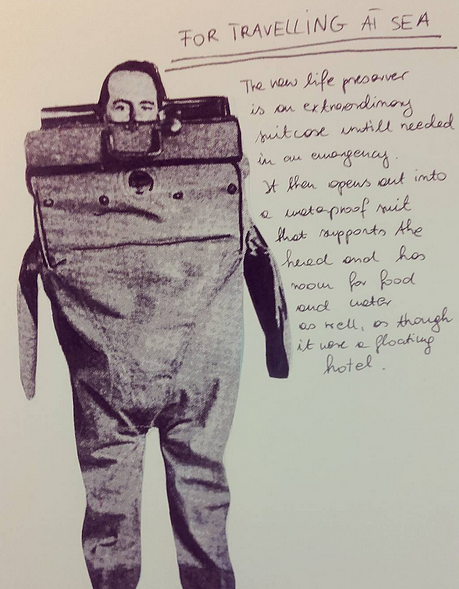 FOR TRAVELLING AT SEA
The new life preserver
is an extraordinary
suitcase untill needed
in an emergency.
It then opens out into
a waterproof suit
that supports the
head and has
room for food
and water
as well, as though
it were a floating
hotel.